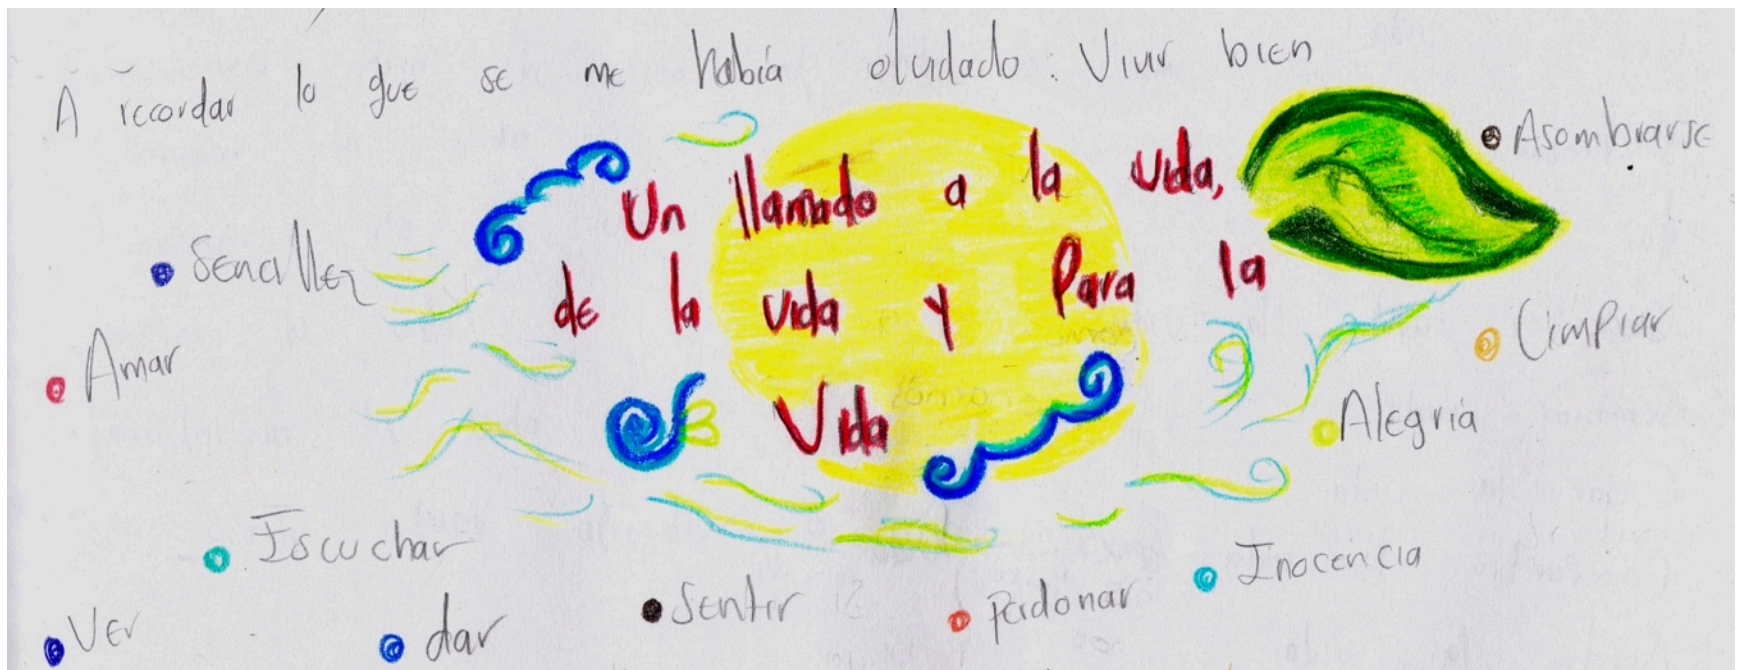 A recordar lo que se me había olvidado: Vivir bien
Un llamado a la vida,
de la vida y Para la
Vida
Asombrarse
Sencillez
Limpiar
Amar
Alegría
Escuchar
Inocencia
Sentir
Perdonar
Ver
dar